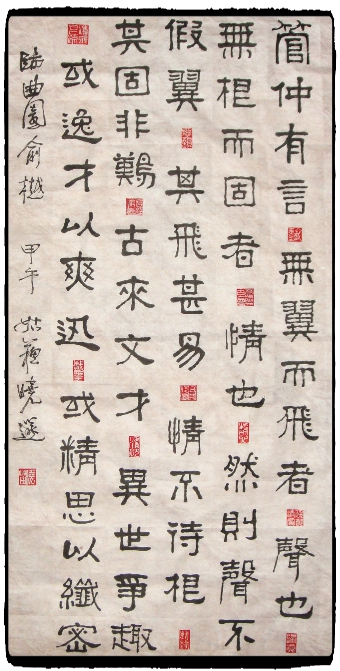 管仲有言無翼而飛者聲也
無根而固者情也然則聲不
假翼其飛甚易情不待根
其固非難古來文才異世爭趣
或逸才以爽迅或精思以纖密
臨曲園俞樾 甲午 姑蘇曉